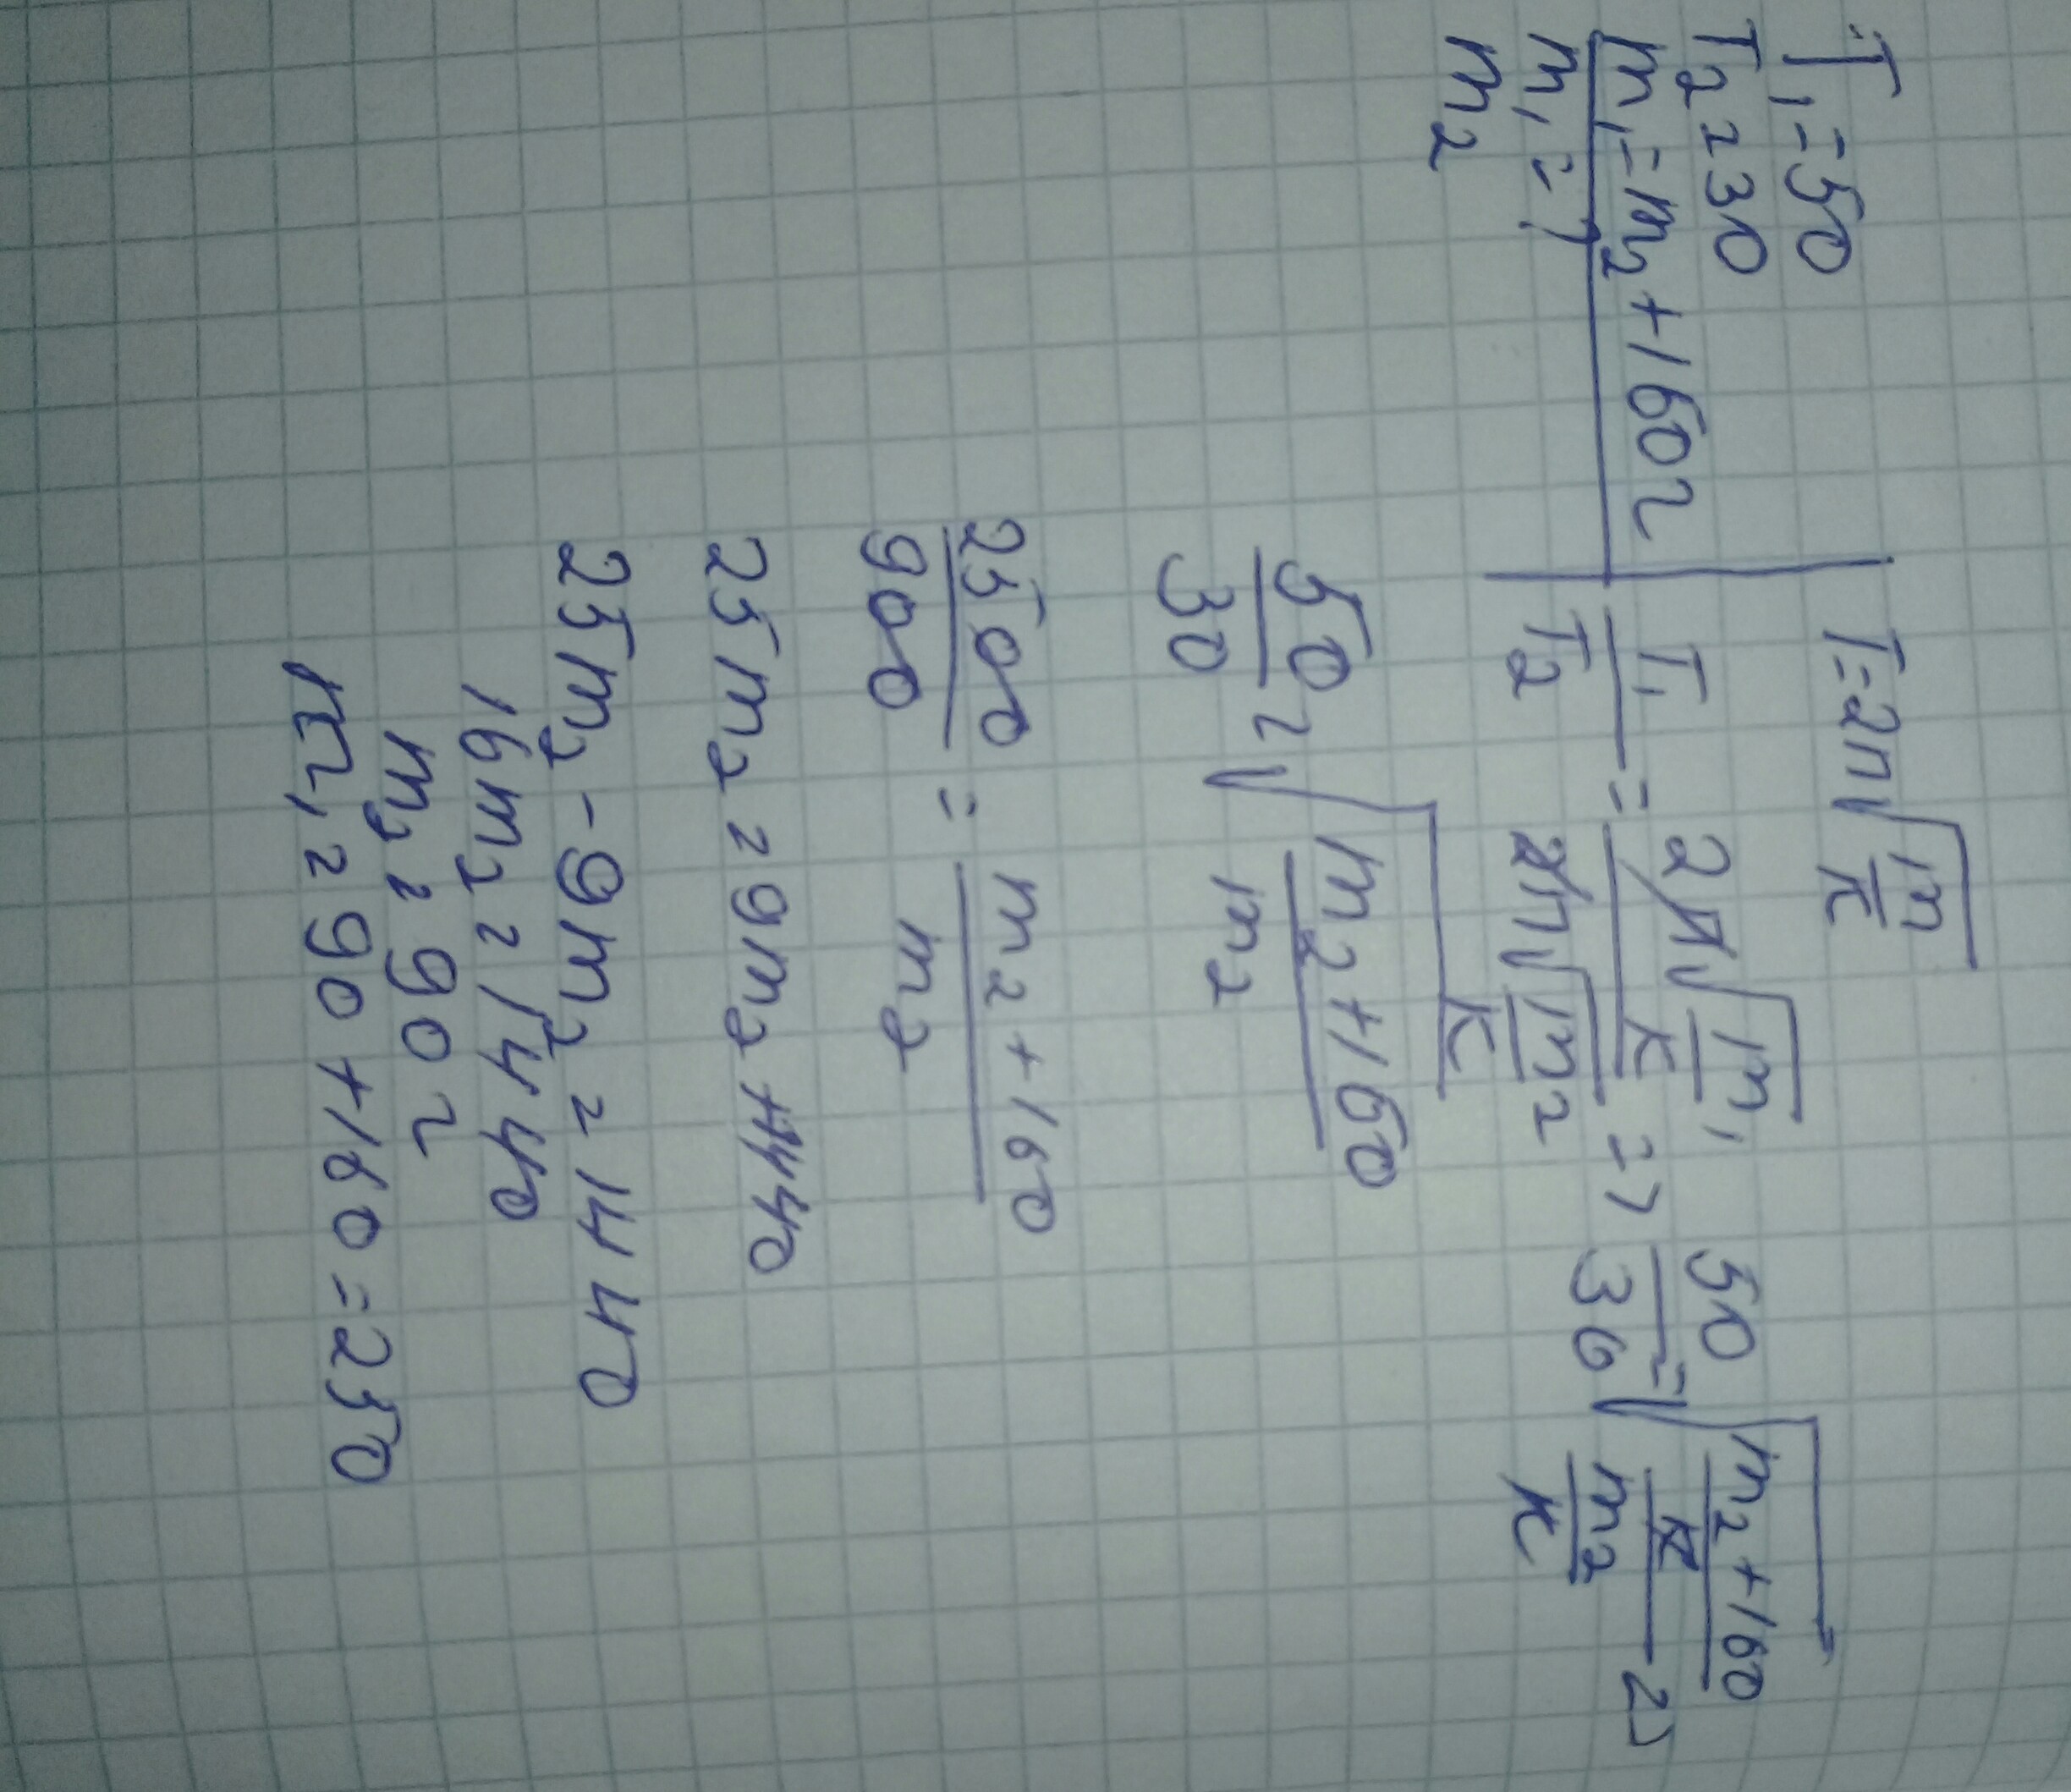 T₁=50
T₂=30
m₁=m₂+160г
m₁=?
m₂
T=2π√(m/к)
T₁/T₂ = 2π√(m₁/к) / 2π√(m₂/к) => 50/30 = √((m₂+160)/к / m₂/к) =>
50/30 = √((m₂+160)/m₂)
2500/900 = (m₂+160)/m₂
25m₂=9m₂+1440
25m₂-9m₂=1440
16m₂=1440
m₂=90г
m₁=90+160=250